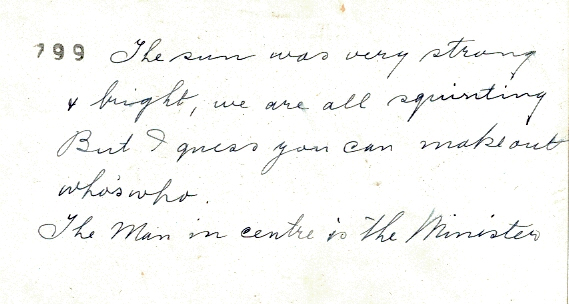 799 The sun was very strong
& bright, we are all squinting
But I guess you can make out
who's who.
The Man in centre is the Minister